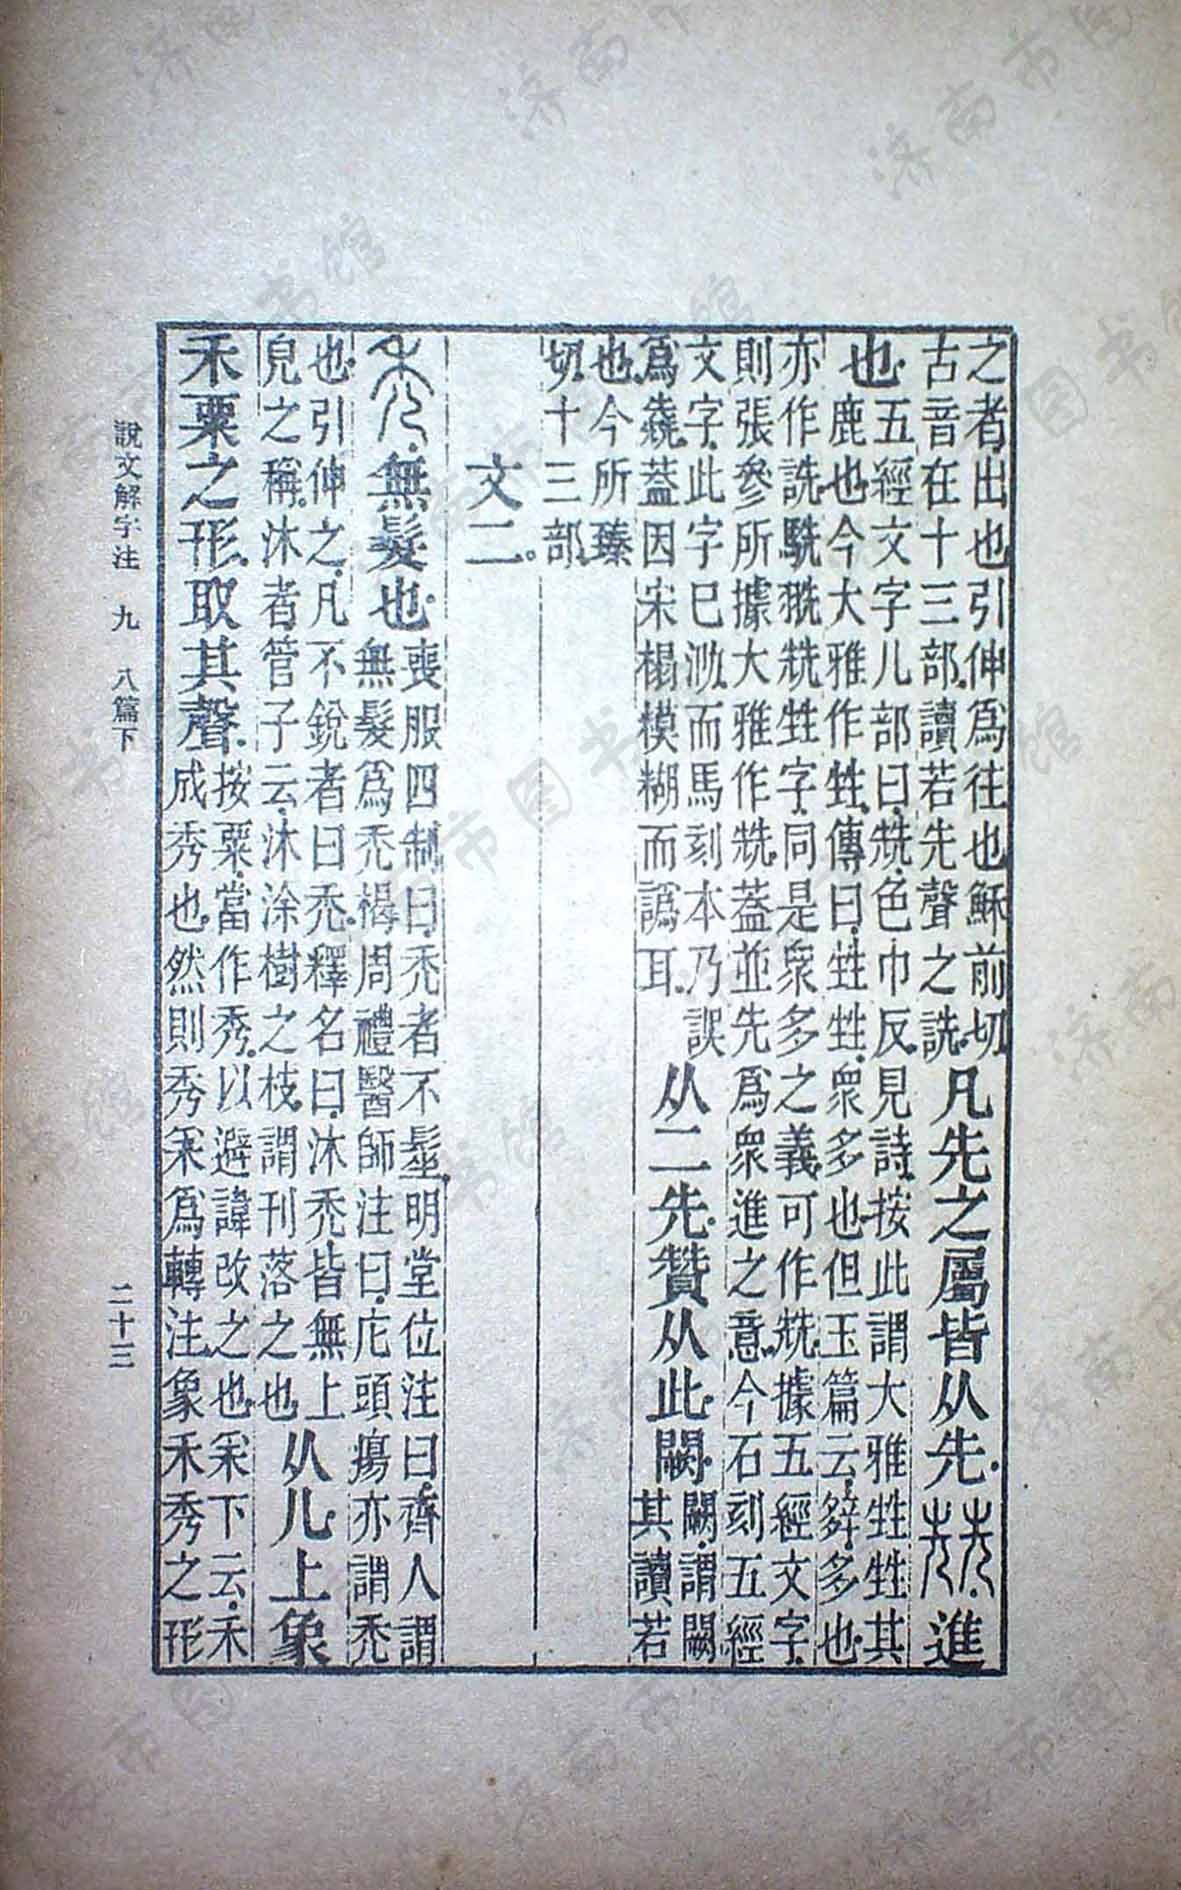 之者出也引伸爲往也穌前切
古音在十三部讀若先聲之詵
凡先之屬皆从先兟進
也
五經文字儿部曰兟色巾反見詩按此謂大雅甡甡其
鹿也今大雅作甡傳曰甡甡衆多也但玉篇云多也
亦作詵駪兟甡字同是衆多之義可作兟據五經文字
則張參所據大雅作兟蓋並先爲衆進之意今石刻五經
文字此字已泐而馬刻本乃誤
爲蓋因宋榻模糊而譌耳
从二先贊从此闕
闕謂闕
其讀若
也今所臻
切十三部
文二
禿無髮也
喪服四制曰禿者不髽明堂位注曰齊人謂
無髮爲禿楬周禮醫師注曰庀頭瘍亦謂禿
也引伸之凡不銳者曰禿釋名曰沐禿皆無上
皃之稱沐者管子云沐涂樹之枝謂刊落之也
从儿上象
禾粟之形取其聲
按粟當作秀以避諱改之也采下云禾
成秀也然則秀采爲轉注象禾秀之形
說文解字注 九 八篇下 二十三